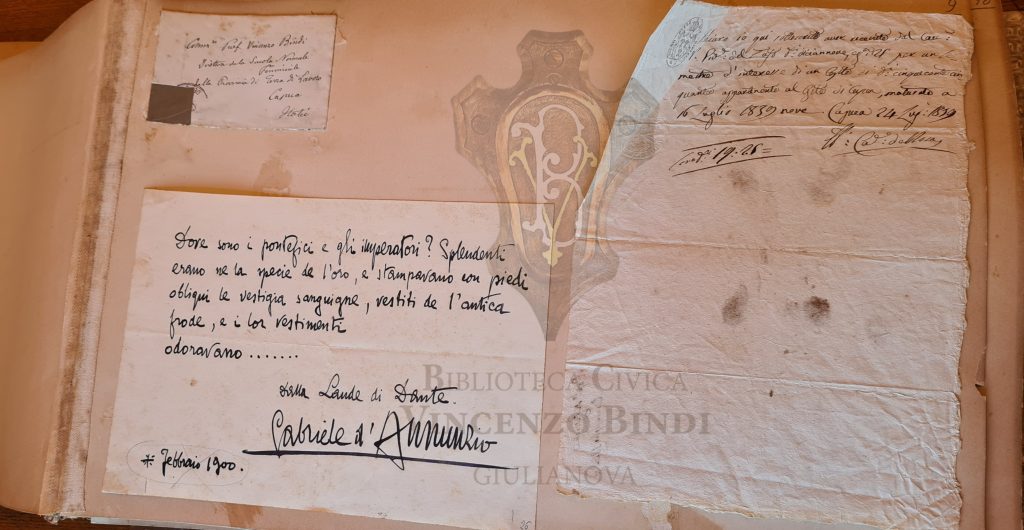 Comm. Prof. Vincenzo Bindi
Direttore della Scuola Normale
Femminile
della Provincia di Terra di Lavoro
Capua
Italie
Dove sono i pontefici e gli imperatori? Splendenti
erano ne la specie de l'oro, e stampavano con piedi
obliqui le vestigia sanguigne, vestiti de l'antica
frode, e i lor vestimenti
odoravano.......
Dalla Laude di Dante.
Gabriele d'Annunzio
* Febbraio 1900.
9
io qui sottoscritto aver ricevuto dal
diciannove, g. 26 per un
d'interesse di un
quanta appartenente al maturato a
16 Luglio 1839 nove. Capua 24 Lug: 1839
19:26=
BIBLIOTECA CIVICA
VINCENZO BINDI
GIULIANOVA
26